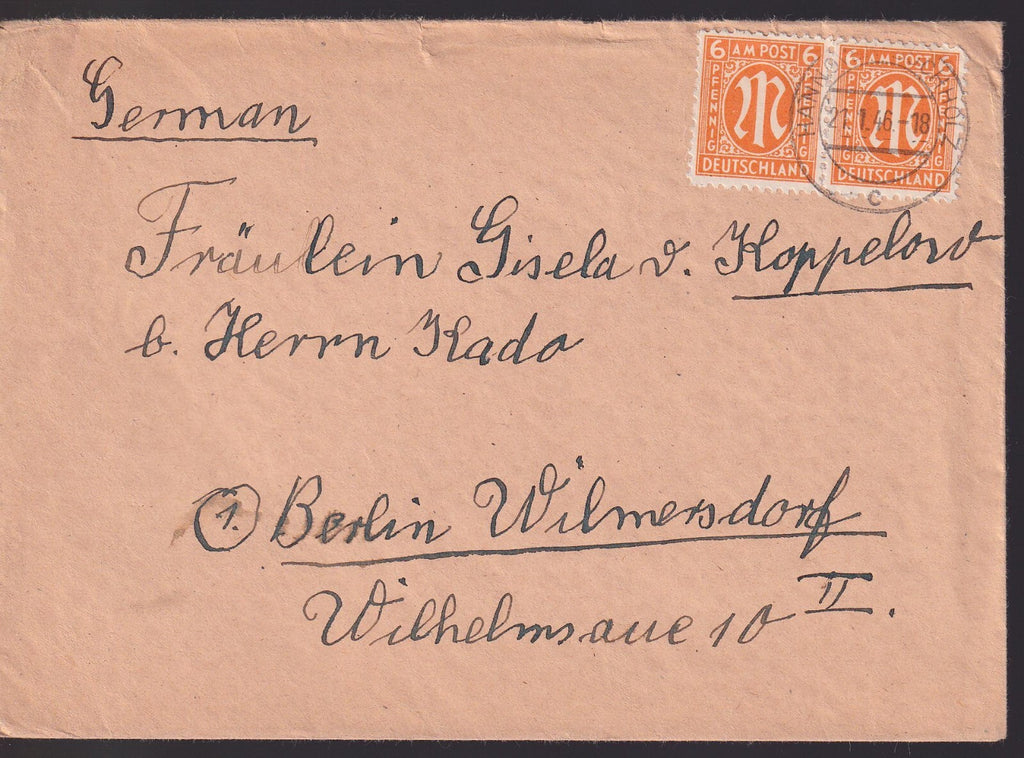 German
6 AM POST 6
PFENNIG PFENNIG
DEUTSCHLAND
6 AM POST 6
PFENNIG PFENNIG
DEUTSCHLAND
21.1.46.-18
c
Fräulein Gisela v. Koppelow
b. Herrn Kado
1. Berlin Wilmersdorf
Wilhelmsaue 10 II.